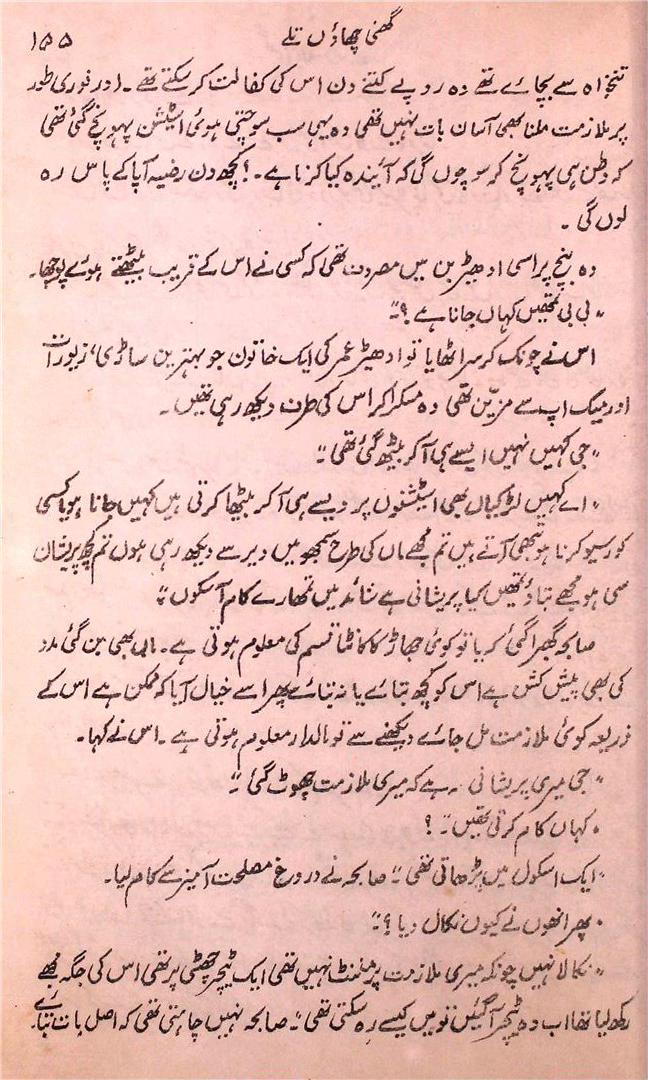 ۱۵۵ گھنی چھاؤں تلے
تنخواہ سے بچائے تھے وہ روپے کتنے دن اس کی کفالت کر سکتے تھے۔ اور فوری طور
پر ملازمت ملنا بھی آسان بات نہیں تھی وہ یہی سب سوچتی ہوئی اسٹیشن پہونچ گئی تھی
کہ وطن ہی پہونچ کر سوچوں گی کہ آئیندہ کیا کرنا ہے۔! کچھ دن رضیہ آپا کے پاس رہ
لوں گی۔
وہ بنچ پر اسی ادھیڑ بن میں مصروف تھی کہ کسی نے اس کے قریب بیٹھتے ہوئے پوچھا۔
"بی بی تمھیں کہاں جانا ہے؟"
اس نے چونک کر سر اٹھایا تو ادھیڑ عمر کی ایک خاتون جو بہترین ساڑی، زیورات
اور میک اپ سے مزیّن تھی وہ مسکرا کر اس کی طرف دیکھ رہی تھیں۔
"جی کہیں نہیں ایسے ہی آکر بیٹھ گئی تھی"
"اے کہیں لڑکیاں بھی اسٹیشنوں پر ویسے ہی آکر بیٹھا کرتی ہیں کہیں جانا ہو یا کسی
کو رسیو کرنا ہو تبھی آتے ہیں تم مجھے ماں کی طرح سمجھ میں دیر سے دیکھ رہی ہوں تم کچھ پریشان
سی ہو مجھے بتاؤ تمھیں کیا پریشانی ہے شائد میں تمھارے کام آسکوں"
صابحہ گھبرا گئی کریا تو کوئی جھاڑ کا کانٹا قسم کی معلوم ہوتی ہے۔ ماں بھی بن گئی مدد
کی بھی پیش کش ہے اس کو کچھ بتائے یا نہ بتائے پھر اسے خیال آیا کہ ممکن ہے اس کے
ذریعہ کوئی ملازمت مل جائے دیکھنے سے تو مالدار معلوم ہوتی ہے۔ اس نے کہا۔
"جی میری پریشانی یہ ہے کہ میری ملازمت چھوٹ گئی"
"کہاں کام کرتی تھیں"؟
"ایک اسکول میں پڑھاتی تھی" صابحہ نے دروغ مصلحت آمیز سے کام لیا۔
"پھر انھوں نے کیوں نکال دیا؟"
"نکالا نہیں چونکہ میری ملازمت پرمننٹ نہیں تھی ایک ٹیچر چھٹی پر تھی اس کی جگہ مجھے
رکھ لیا تھا اب وہ ٹیچر آگئیں تو میں کیسے رہ سکتی تھی" صابحہ نہیں چاہتی تھی کہ اصل بات بتائے